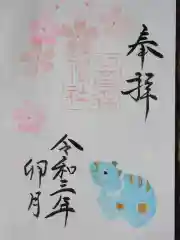 奉拝
令和三年
卯月